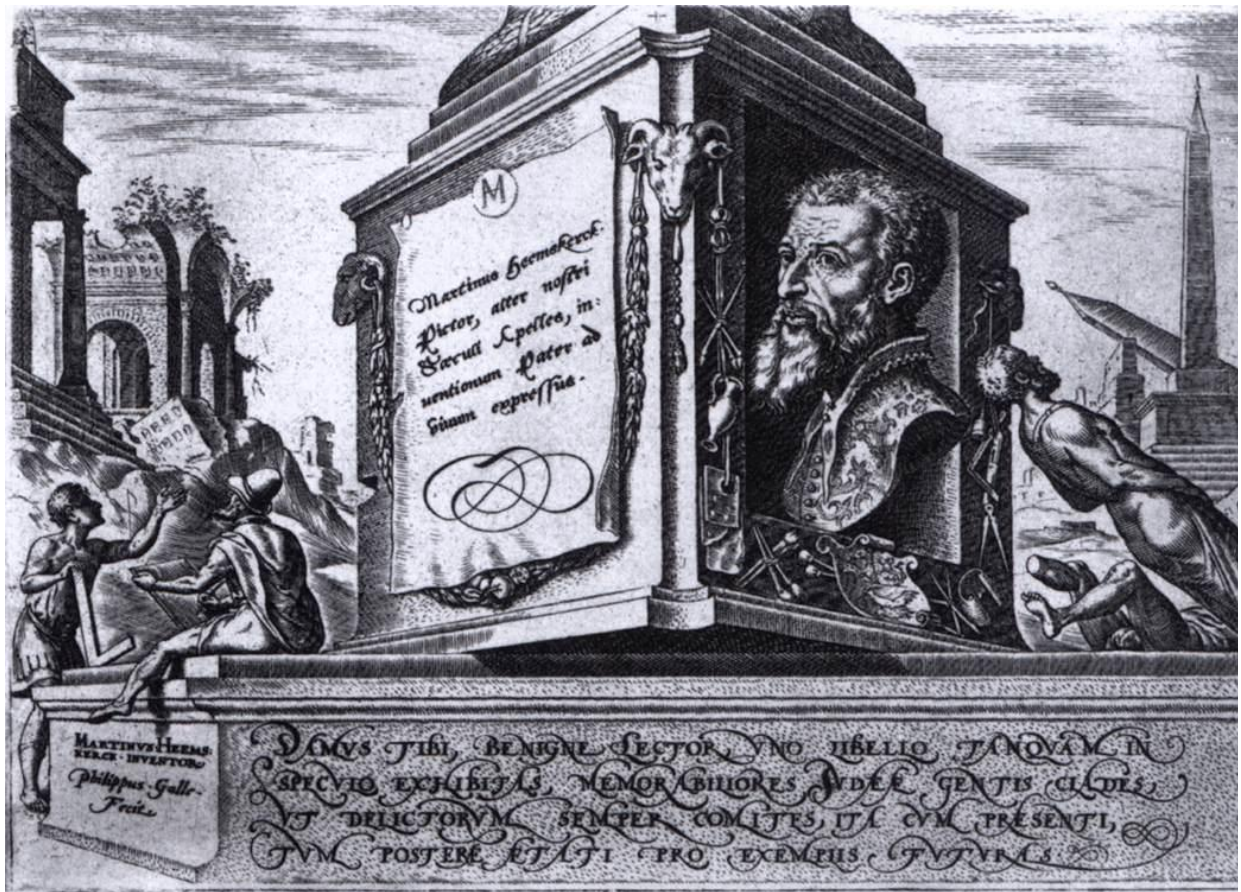 M
Martinus Heemskerck.
Pictor, alter nostri
Sæculi Apelles, in:
uentionum Pater ad
uiuum expressus.
MARTINVS HEEMS:
KERCK INVENTOR
Philippus Galle.
Fecit
DAMVS TIBI, BENIGNE LECTOR, VNO LIBELLO, TANQVAM IN
SPECVLO EXHIBITAS, MEMORABILIORES IVDEÆ GENTIS CLADES,
VT DELICTORVM SEMPER COMITES, ITA CVM PRESENTI,
TVM POSTERÆ ÆTATI PRO EXEMPLIS FVTVRAS